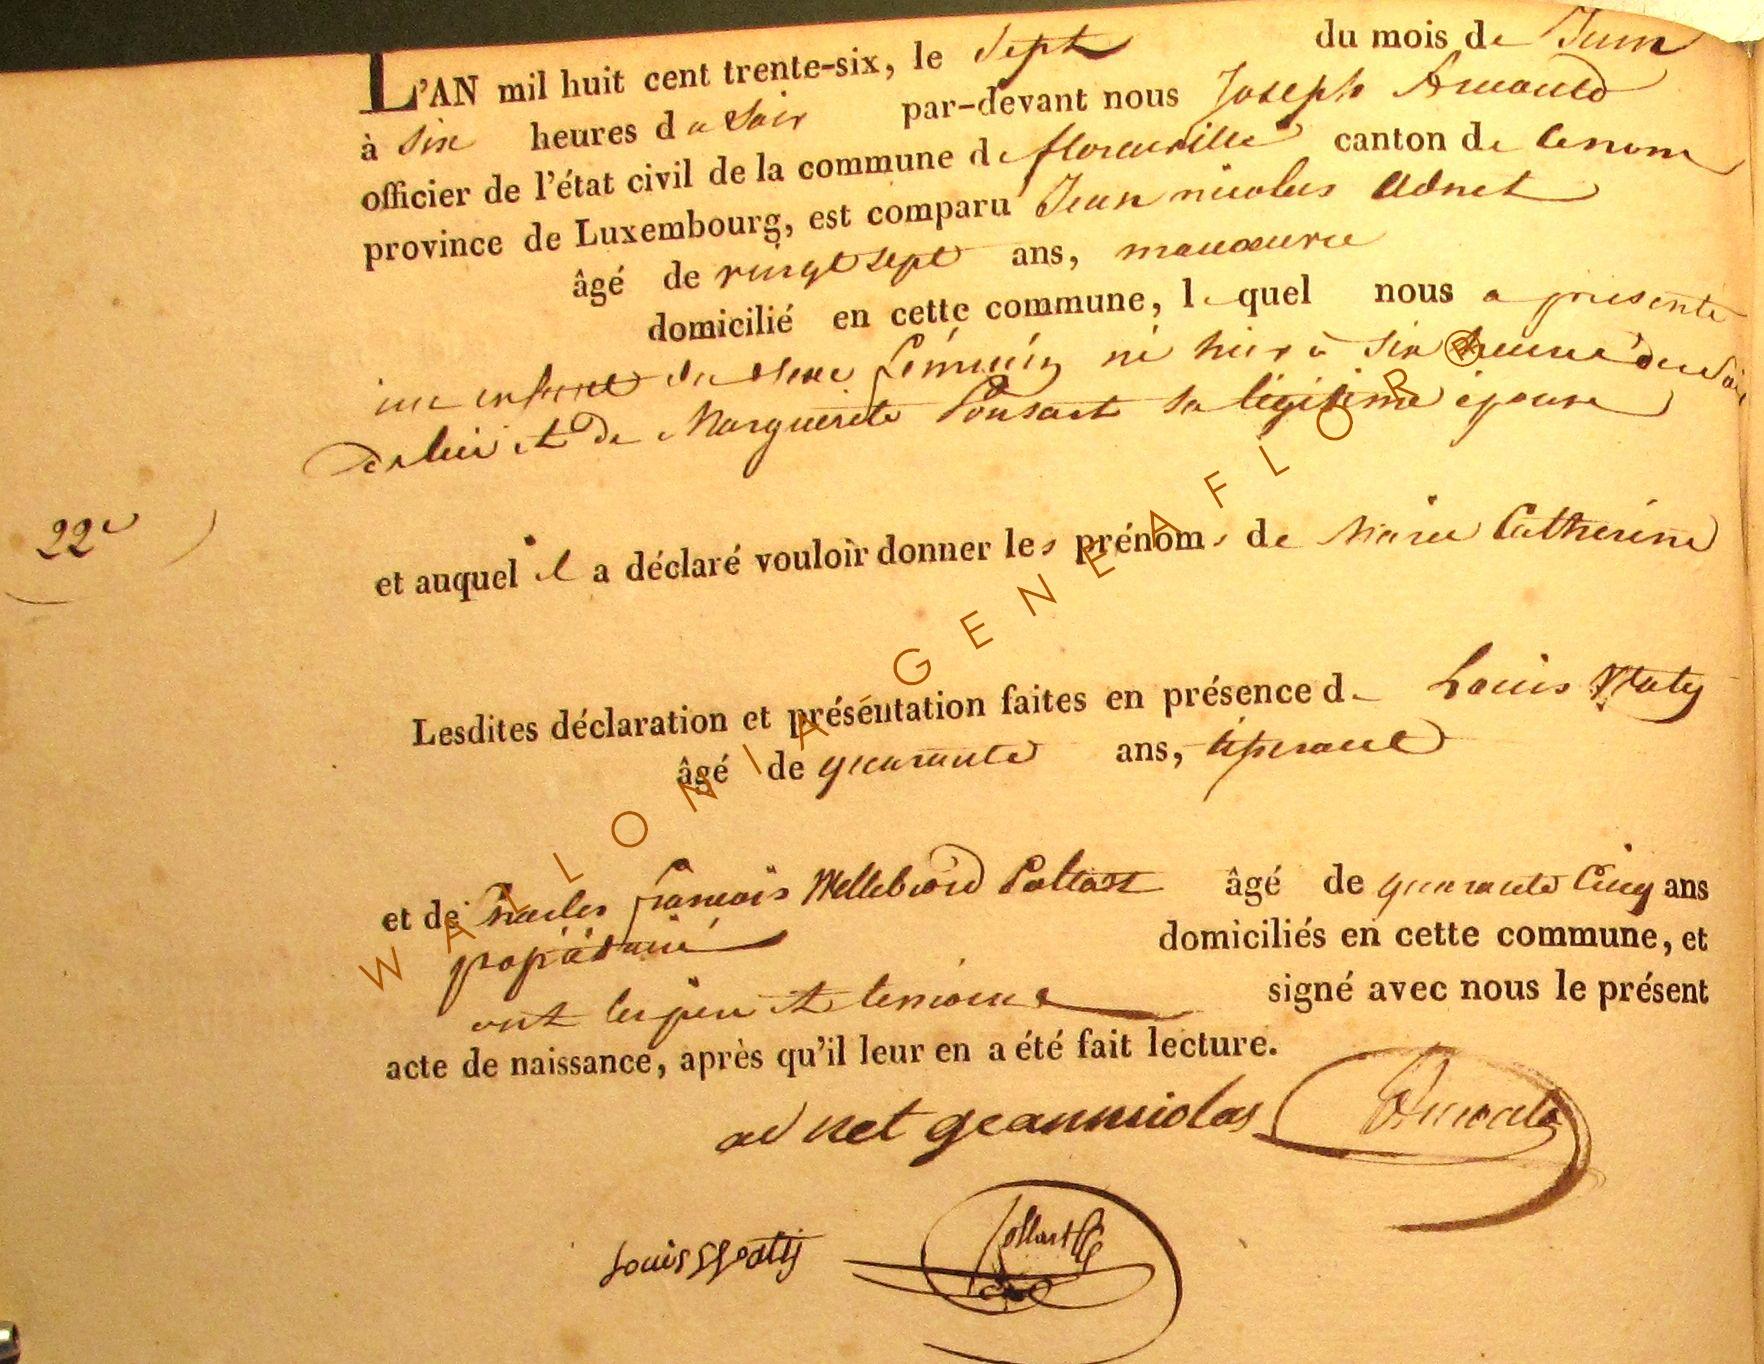 L'AN mil huit cent trente-six, le Sept du mois de Juin
à six heures du soir par-devant nous Joseph Arnould
officier de l'état civil de la commune de florenville canton de
province de Luxembourg, est comparu Jean nicolas Adnet
âgé de vingt sept ans, manoeuvre
domicilié en cette commune, lequel nous a présenté
un enfant du sexe féminin né hier à six heures du soir
de lui et de Marguerite Ponsart sa légitime épouse
22e
et auquel il a déclaré vouloir donner les prénoms de Marie Catherine
Lesdites déclaration et présentation faites en présence de Louis
âgé de quarante ans, tisserand
et de Charles françois Collart âgé de quarante cinq ans
propriétaire domiciliés en cette commune, et
ont les père et témoins signé avec nous le présent
acte de naissance, après qu'il leur en a été fait lecture.
adnet geannicolas Arnould
Louis Collart
WALLONIA GENEAFLOR